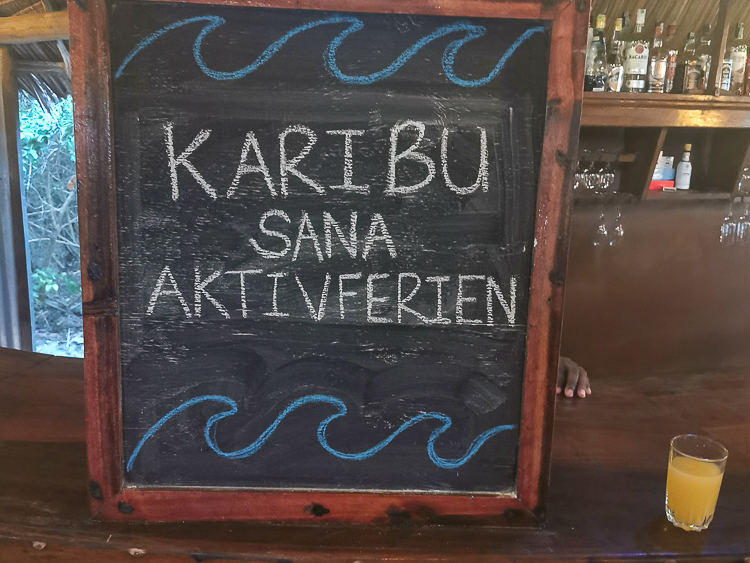 KARIBU
SANA
AKTIVFERIEN
BACARDI